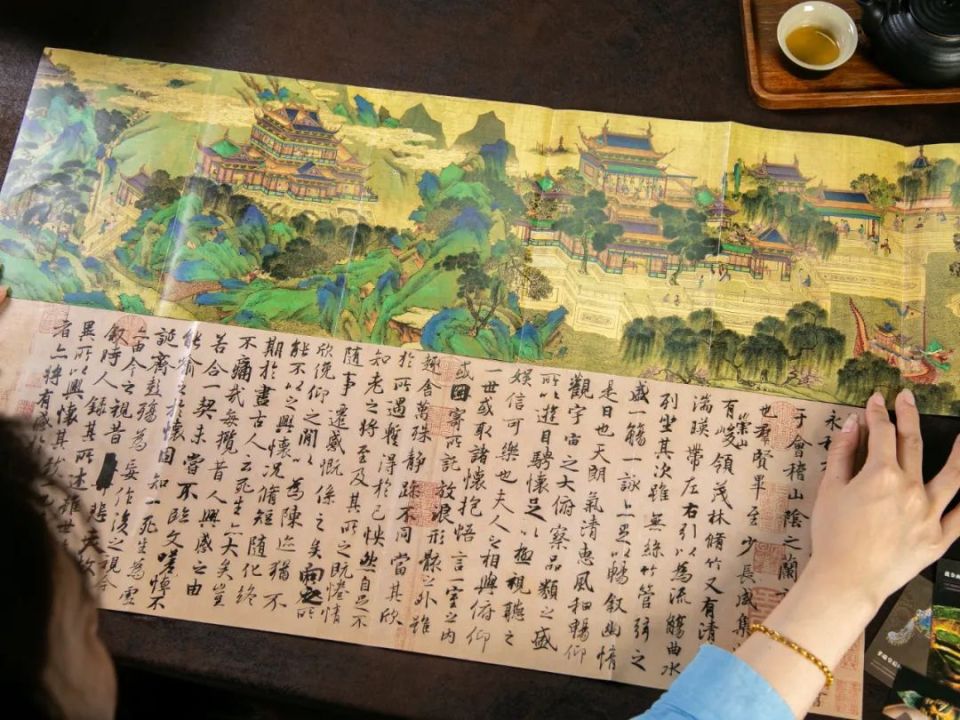 永和
于會稽山陰之蘭
也羣賢畢至少長咸集
有崇山峻領茂林脩竹又有清
湍暎帶左右引以為流觴曲水
列坐其次雖無絲竹管弦之
盛一觴一詠亦足以暢叙幽情
是日也天朗氣清惠風和暢仰
觀宇宙之大俯察品類之盛
所以遊目騁懷足以極視聽之
娛信可樂也夫人之相與俯仰
一世或取諸懷抱悟言一室之内
或因寄所託放浪形骸之外雖
趣舍萬殊静躁不同當其欣
於所遇蹔得於己怏然自足不
知老之將至及其所之既惓情
隨事遷感慨係之矣向之所
欣俛仰之閒以為陳迹猶不
能不以之興懷況脩短隨化終
期於盡古人云死生亦大矣豈
不痛哉每攬昔人興感之由
若合一契未嘗不臨文嗟悼不
能喻之於懷固知一死生為虛
誕齊彭殤為妄作後之視今
亦由今之視昔悲夫故
叙時人錄其所述雖世
異所以興懷其致
者亦將有感